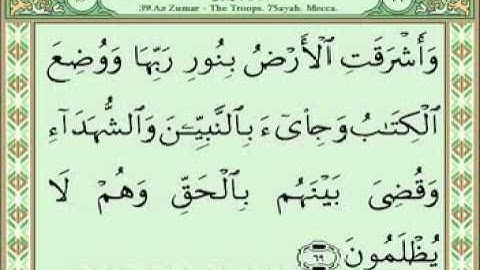 39.Az Zumar - The Troops. 75ayah. Mecca.
وَأَشْرَقَتِ ٱلْأَرْضُ بِنُورِ رَبِّهَا وَوُضِعَ
ٱلْكِتَٰبُ وَجِا۟ىٓءَ بِٱلنَّبِيِّۦنَ وَٱلشُّهَدَآءِ
وَقُضِىَ بَيْنَهُم بِٱلْحَقِّ وَهُمْ لَا
يُظْلَمُونَ ٦٩